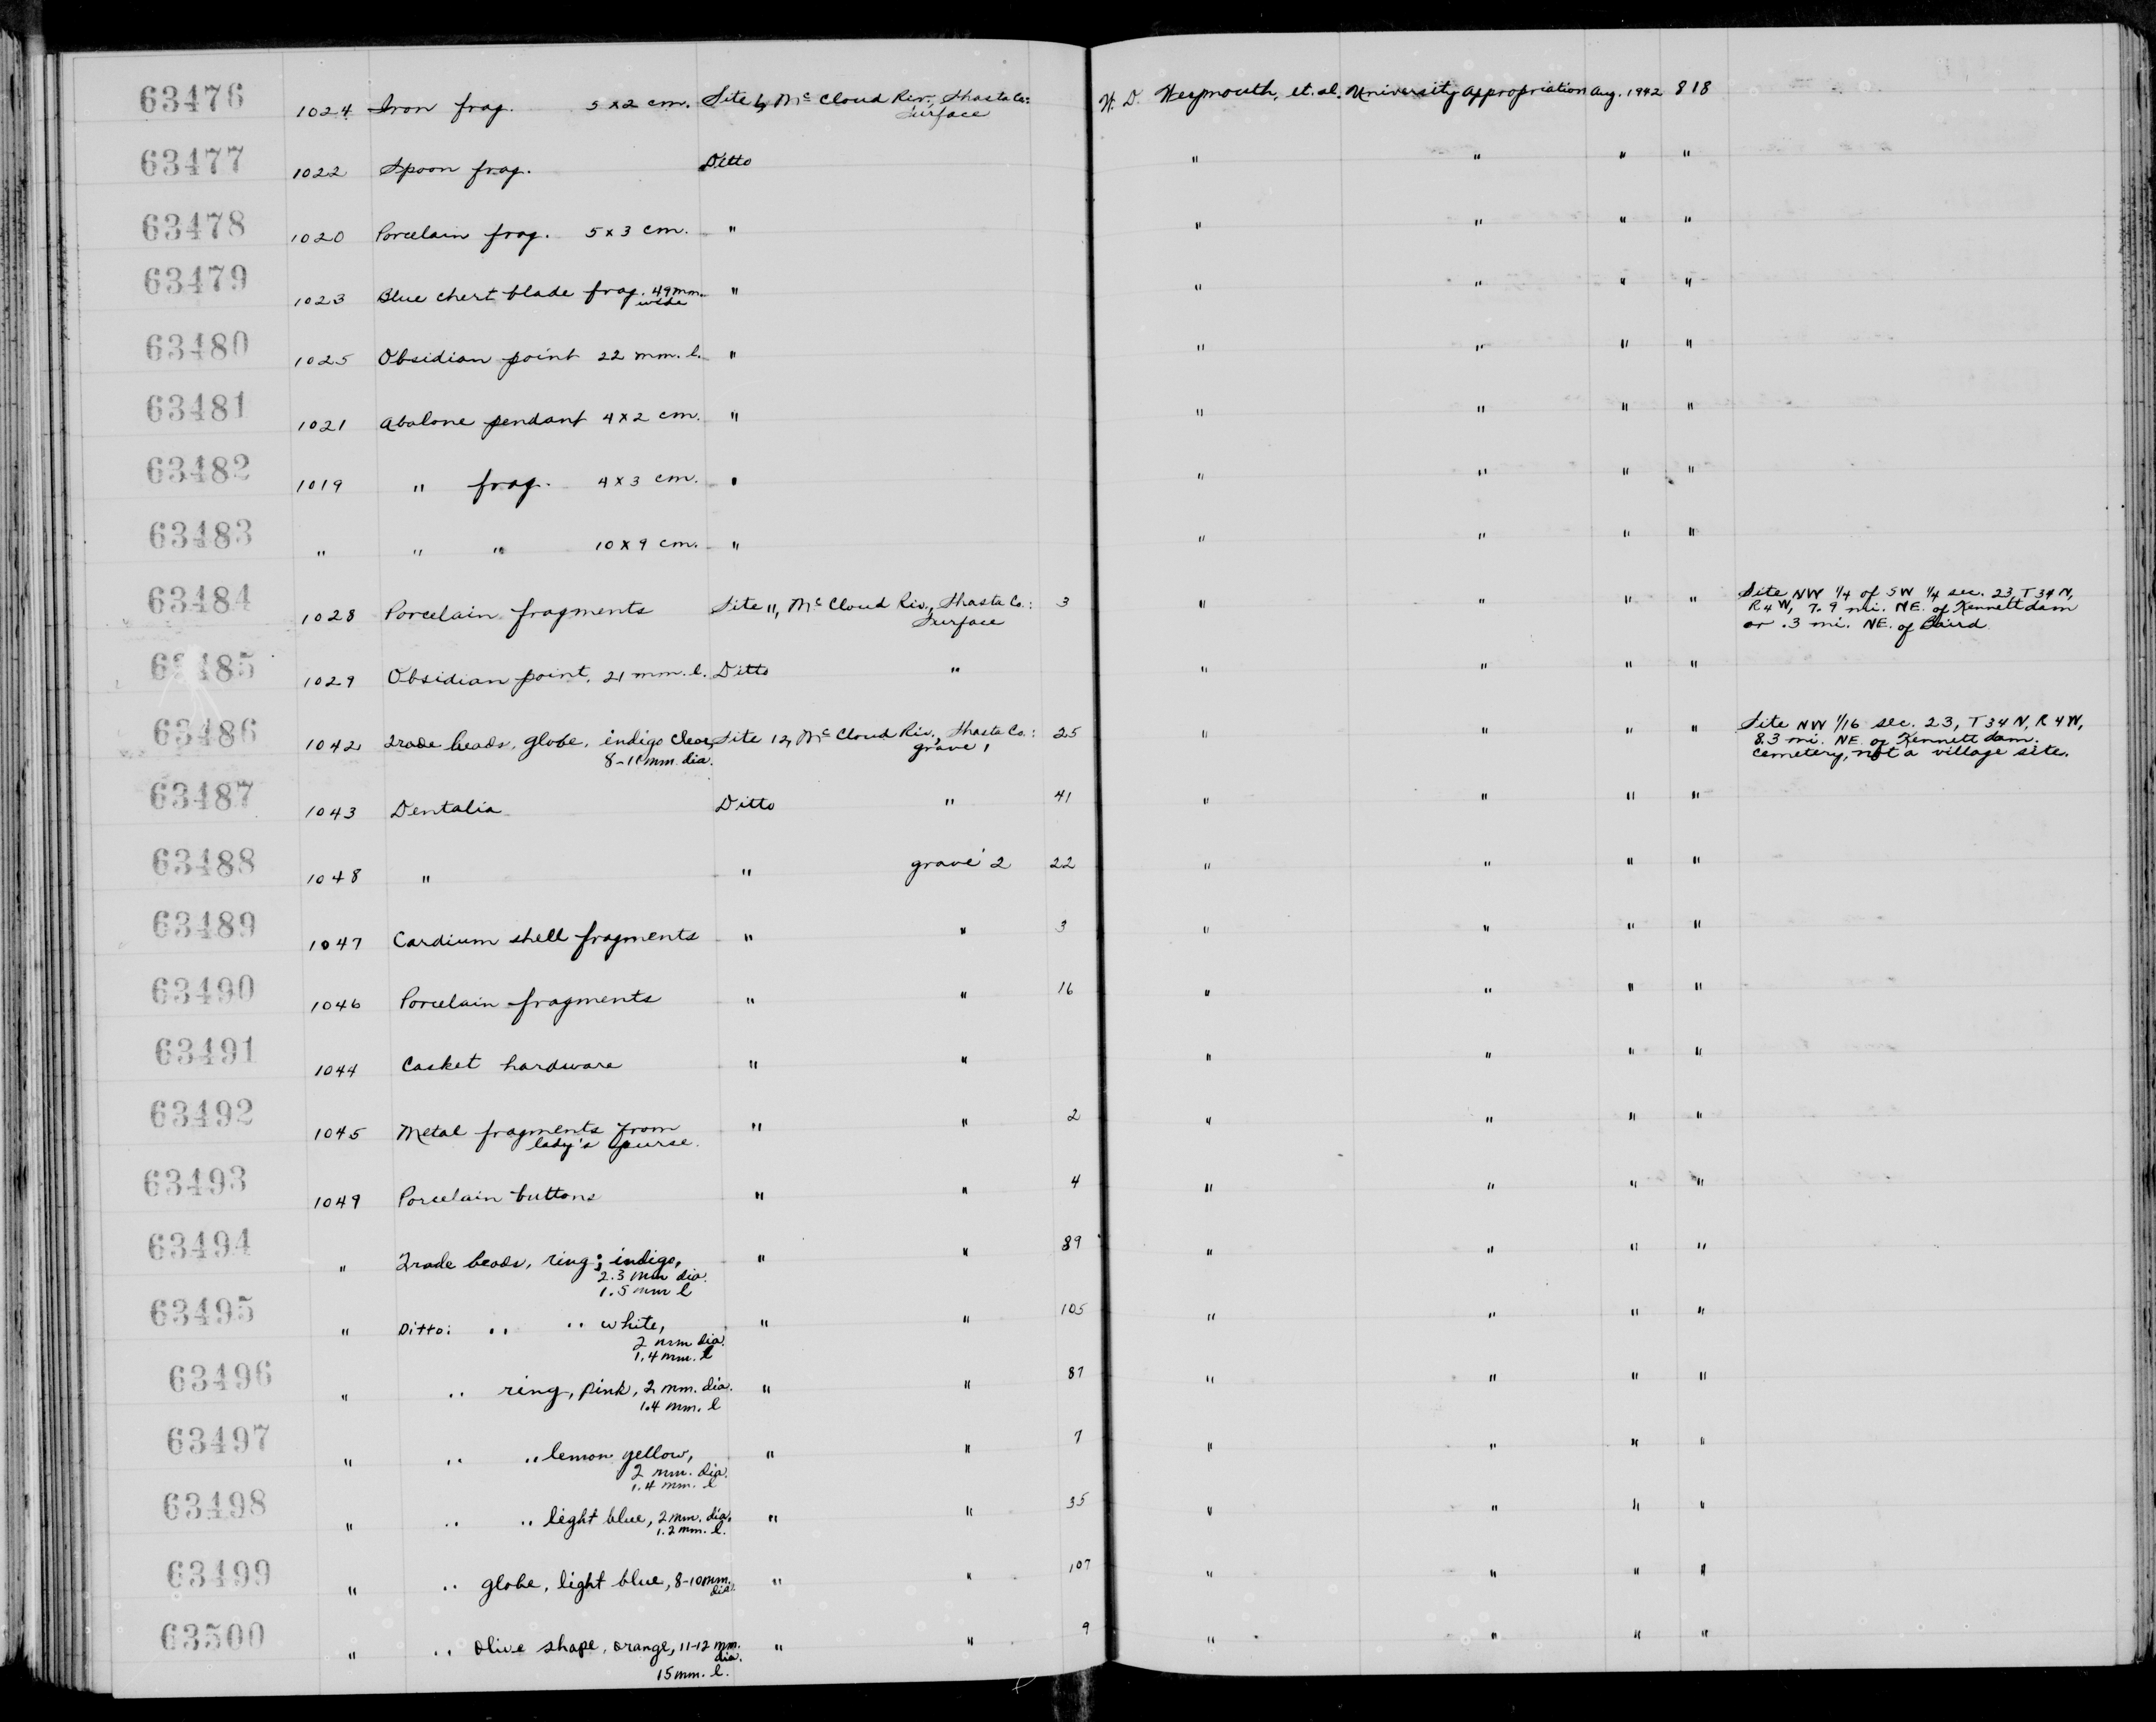 63476 1024 Iron frag. 5 x 2 cm. Site 6, Mc Cloud Riv., Shasta Co: W. D. Weymouth, et. al. University appropriation Aug. 1942 818
Surface
63477 1022 Spoon frag. Ditto " " " "
63478 1020 Porcelain frag. 5 x 3 cm. " " " " "
63479 1023 Blue chert blade frag. 49 mm. " " " " "
wide
63480 1025 Obsidian point 22 mm. l. " " " " "
63481 1021 Abalone pendant 4 x 2 cm. " " " " "
63482 1019 " frag. 4 x 3 cm. " " " " "
63483 " " " 10 x 9 cm. " " " " "
63484 1028 Porcelain fragments Site 11, Mc Cloud Riv., Shasta Co.: 3 " " " " Site NW 1/4 of SW 1/4 sec. 23, T 34 N,
Surface R 4 W, 7.9 mi. NE. of Kennett dam
or .3 mi. NE. of Baird
63485 1029 Obsidian point, 21 mm. l. Ditto " " " " "
63486 1042 Trade beads, globe, indigo clear, Site 12, Mc Cloud Riv., Shasta Co.: 25 " " " " Site NW 1/16 sec. 23, T 34 N, R 4 W,
8-11 mm. dia. grave 1 8.3 mi. NE. of Kennett dam.
Cemetery, not a village site.
63487 1043 Dentalia Ditto " 41 " " " "
63488 1048 " " grave 2 22 " " " "
63489 1047 Cardium shell fragments " " 3 " " " "
63490 1046 Porcelain fragments " " 16 " " " "
63491 1044 Casket hardware " " " " " "
63492 1045 Metal fragments from " " 2 " " " "
lady's purse.
63493 1049 Porcelain buttons " " 4 " " " "
63494 " Trade beads, ring; indigo, " " 89 " " " "
2.3 mm dia.
1.5 mm l
63495 " Ditto: " " white, " " 105 " " " "
2 mm dia.
1.4 mm. l
63496 " " ring, pink, 2 mm. dia. " " 87 " " " "
1.4 mm. l
63497 " " " lemon yellow, " " 7 " " " "
2 mm. dia.
1.4 mm. l
63498 " " " light blue, 2 mm. dia. " " 35 " " " "
1.2 mm. l.
63499 " " globe, light blue, 8-10 mm. " " 107 " " " "
dia.
63500 " " olive shape, orange, 11-12 mm. " " 9 " " " "
dia.
15 mm. l.